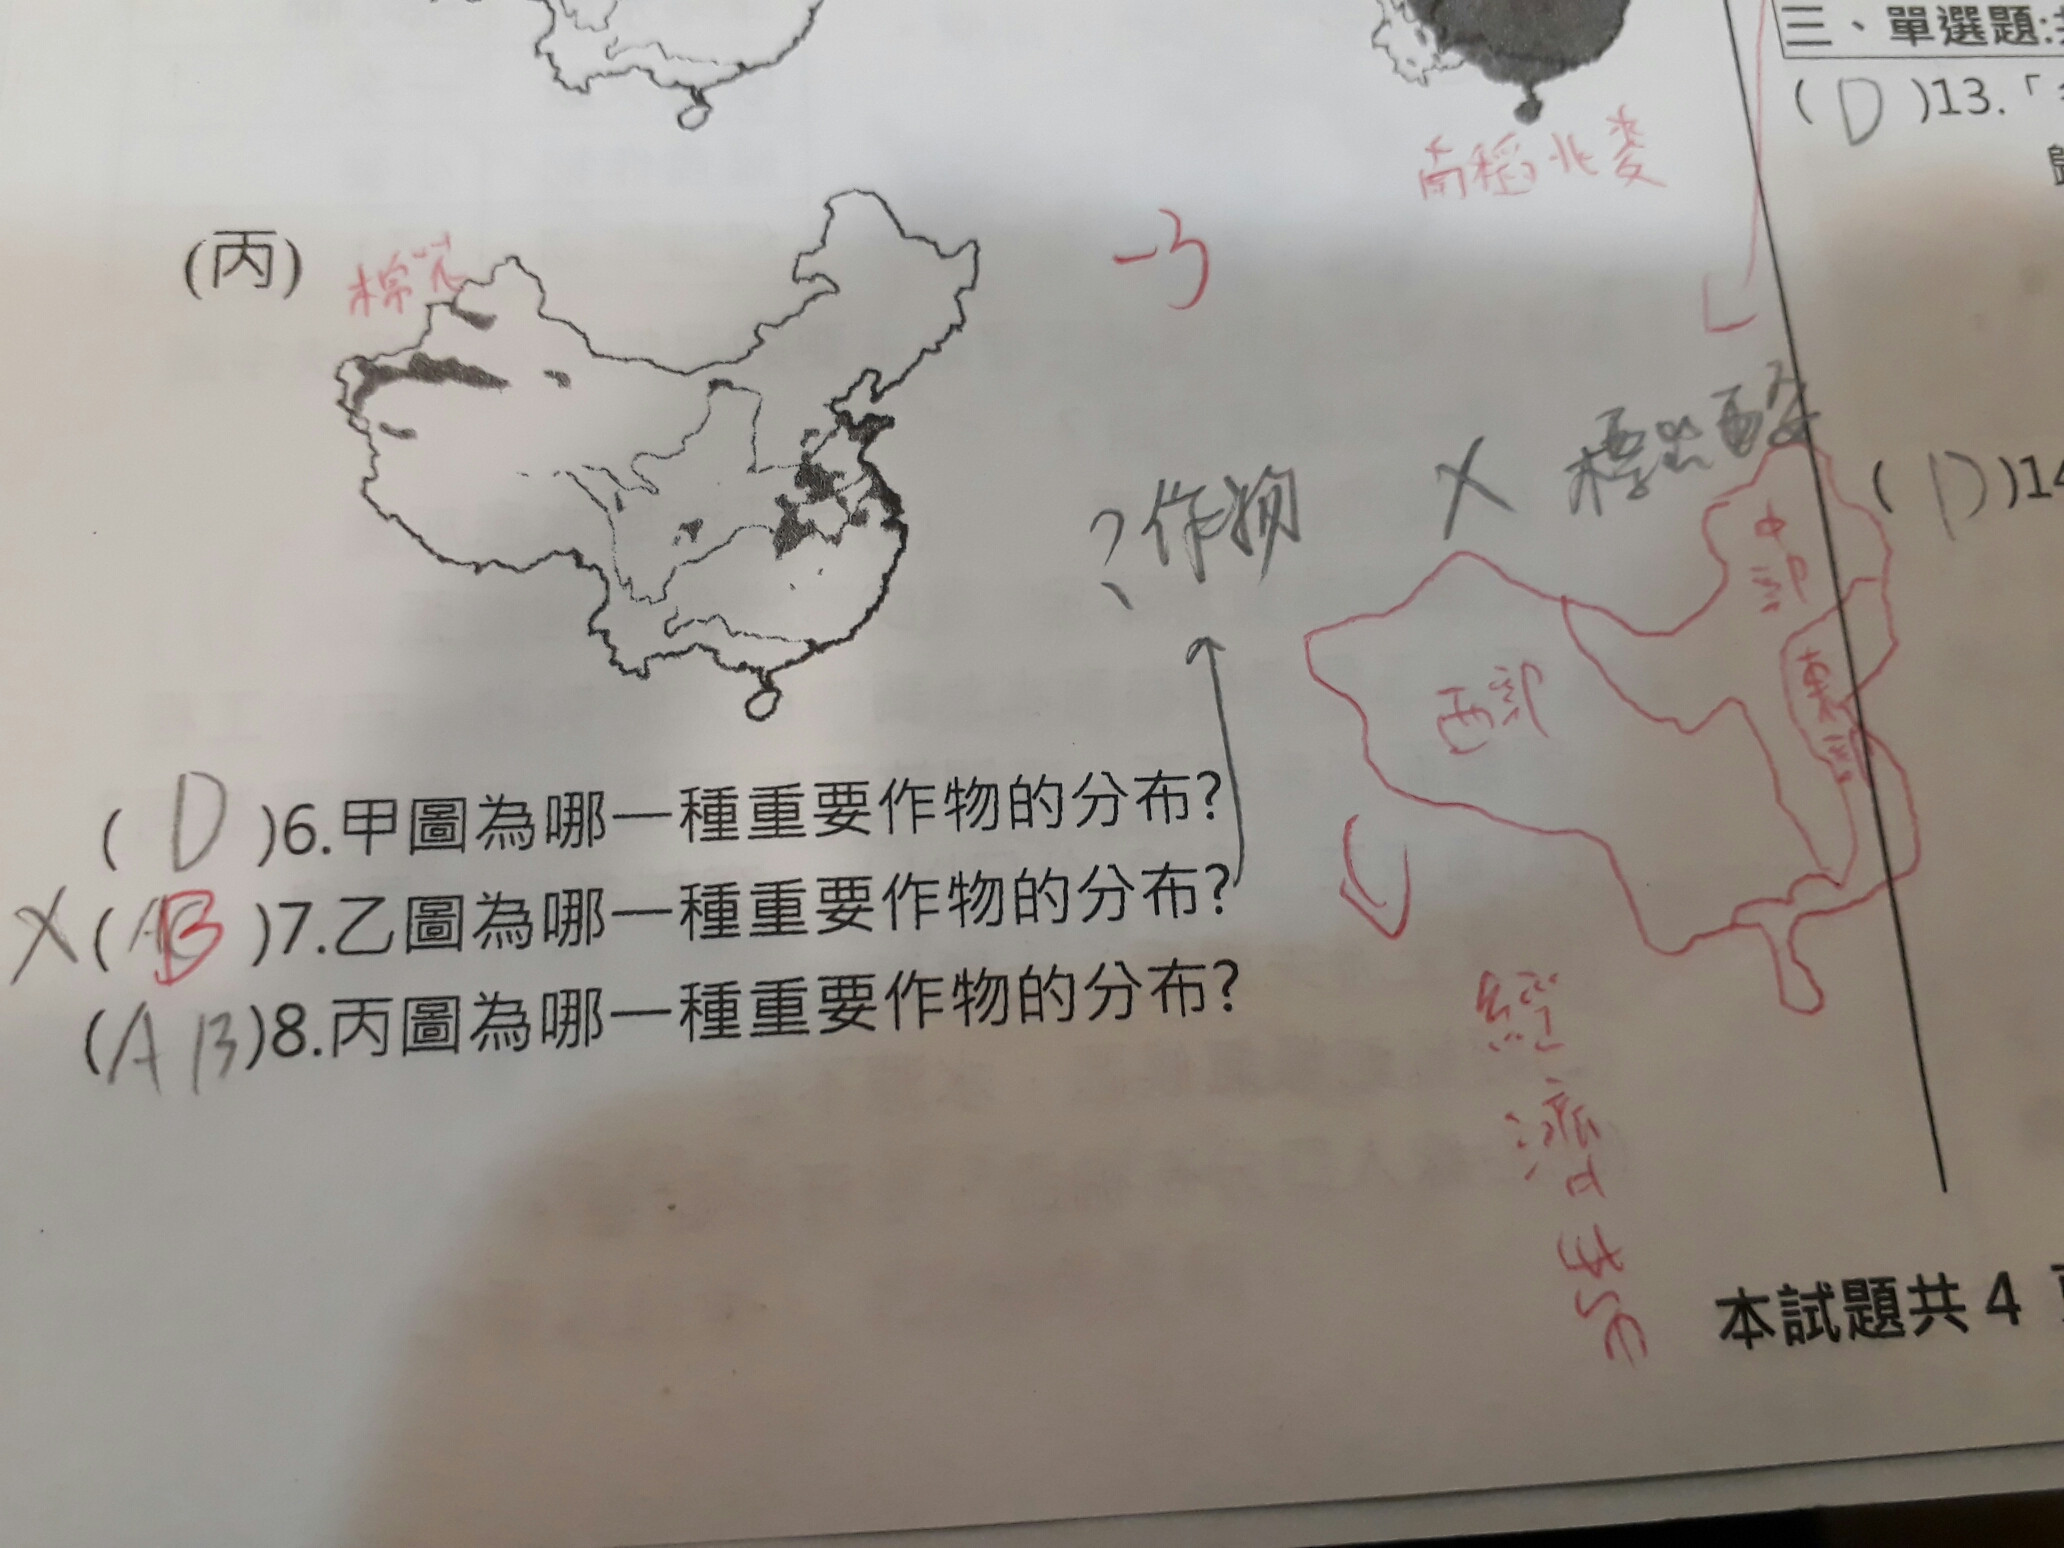 三、單選題:
( D )13.「
南稻北麥
(丙)
棉花
-3
?作物
X
中部
( D )14
西部
東部
( D )6.甲圖為哪一種重要作物的分布?
X( B )7.乙圖為哪一種重要作物的分布?
(AB)8.丙圖為哪一種重要作物的分布?
經濟
本試題共 4